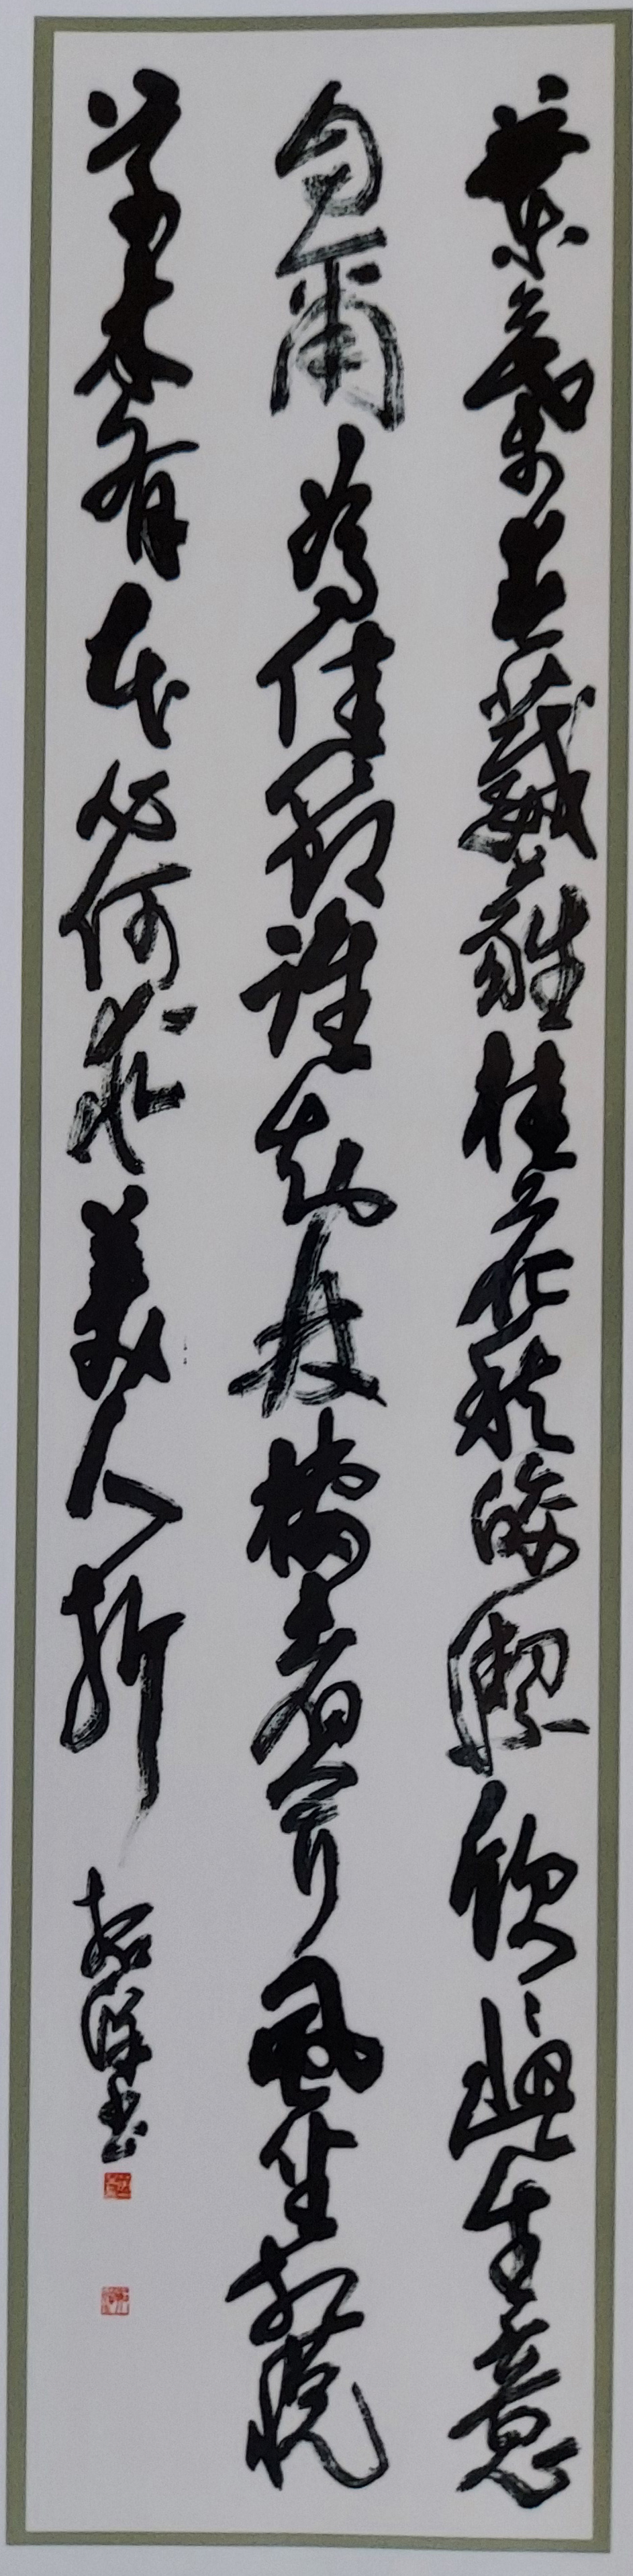 蘭葉春葳蕤桂華秋皎潔欣欣此生意
自爾為佳節誰知林棲者聞風坐相悦
草木有本心何求美人折
書